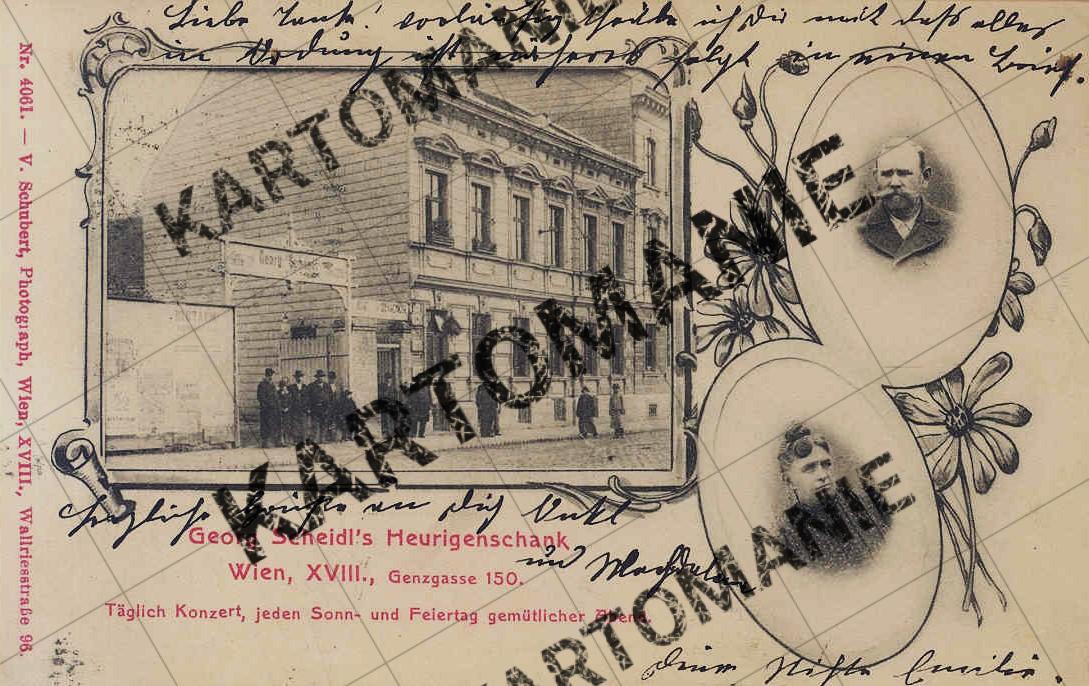 Liebe Tante! vorläufig theile ich Dir mit daß alles
in Ordnung ist näheres folgt in einen Brief.
Nr. 4061. — V. Schubert, Photograph, Wien, XVIII., Wallriesstraße 96.
Georg Scheidl
Herzliche Grüße an Dich Onkl
und Magdalena
Georg Scheidl's Heurigenschank
Wien, XVIII., Genzgasse 150.
Täglich Konzert, jeden Sonn- und Feiertag gemütlicher Abend.
Deine Nichte Emilie.
KARTOMANIE
KARTOMANIE
KARTOMANIE
KARTOMANIE